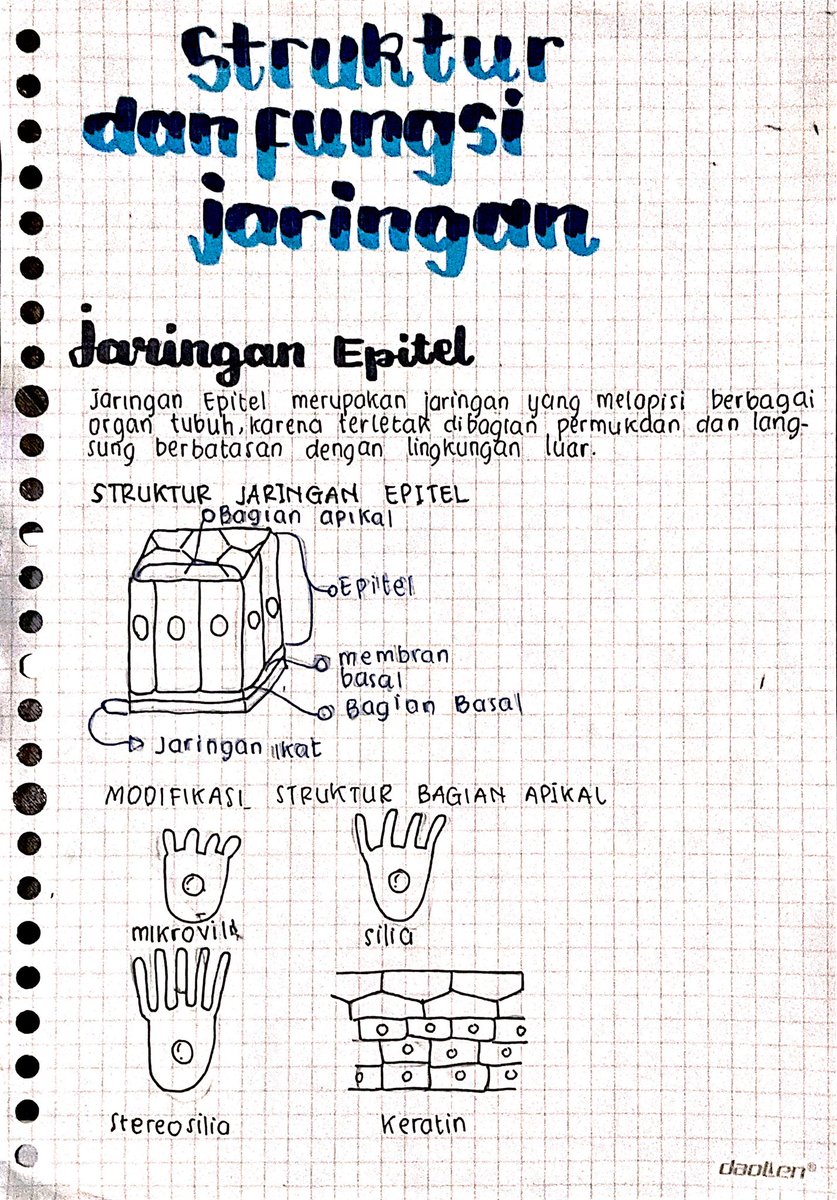 Struktur
dan fungsi
jaringan
Jaringan Epitel
Jaringan Epitel merupakan jaringan yang melapisi berbagai
organ tubuh, karena terletak dibagian permukaan dan lang-
sung berbatasan dengan lingkungan luar.
STRUKTUR JARINGAN EPITEL
Bagian apikal
Epitel
membran
basal
Bagian Basal
Jaringan ikat
MODIFIKASI STRUKTUR BAGIAN APIKAL
mikrovili
silia
stereosilia
keratin
daollen®